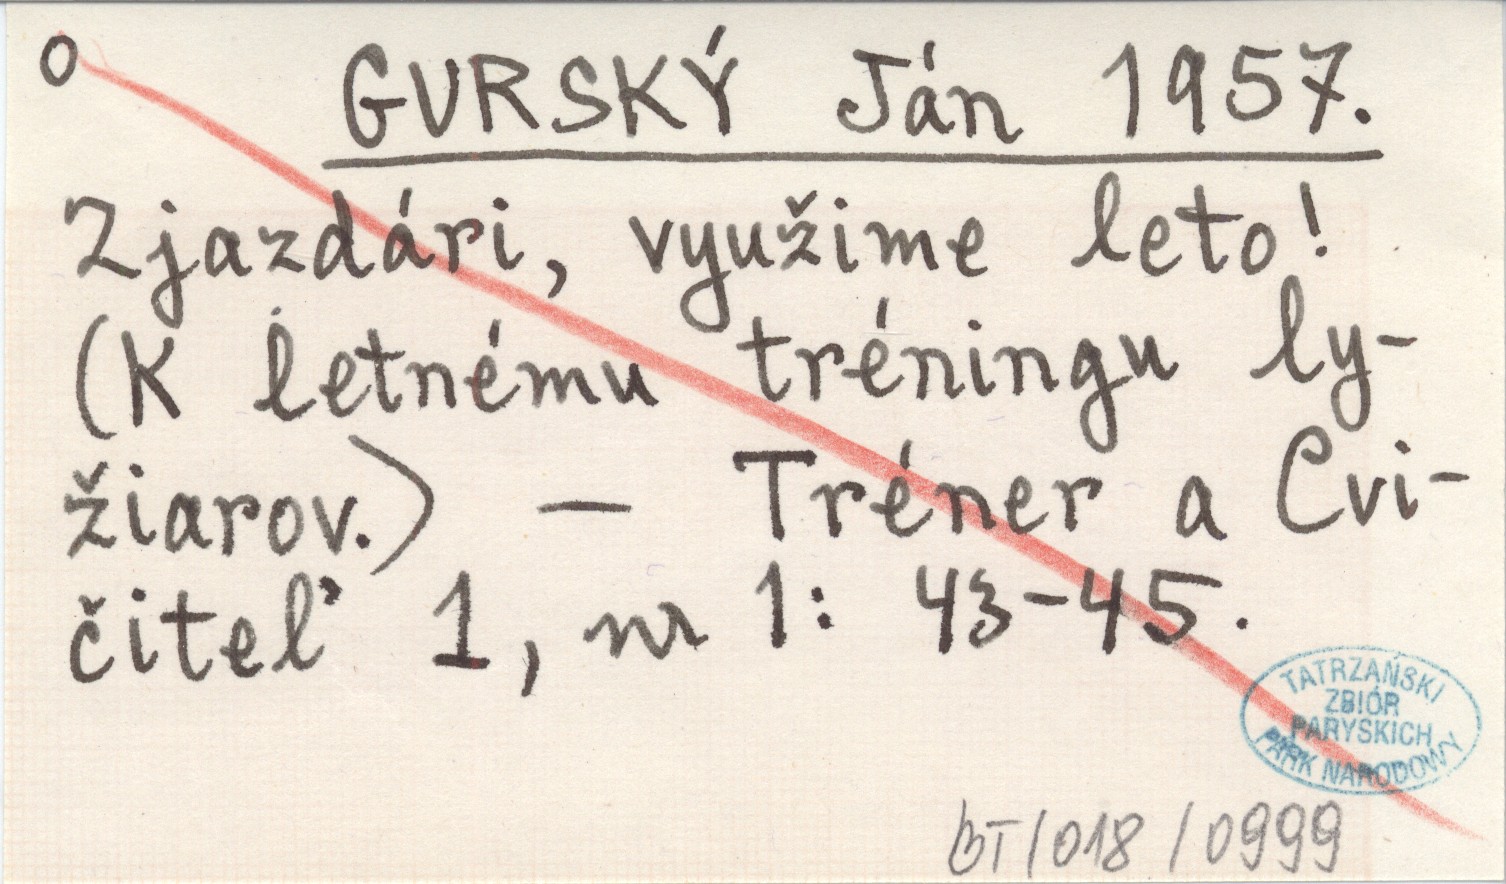 o GURSKÝ Ján 1957.
Zjazdári, využime leto!
(K letnému tréningu ly-
žiarov.) — Tréner a Cvi-
čiteľ 1, nr 1: 43-45.
TATRZAŃSKI
ZBIÓR
PARYSKICH
PARK NARODOWY
BT/018/0999